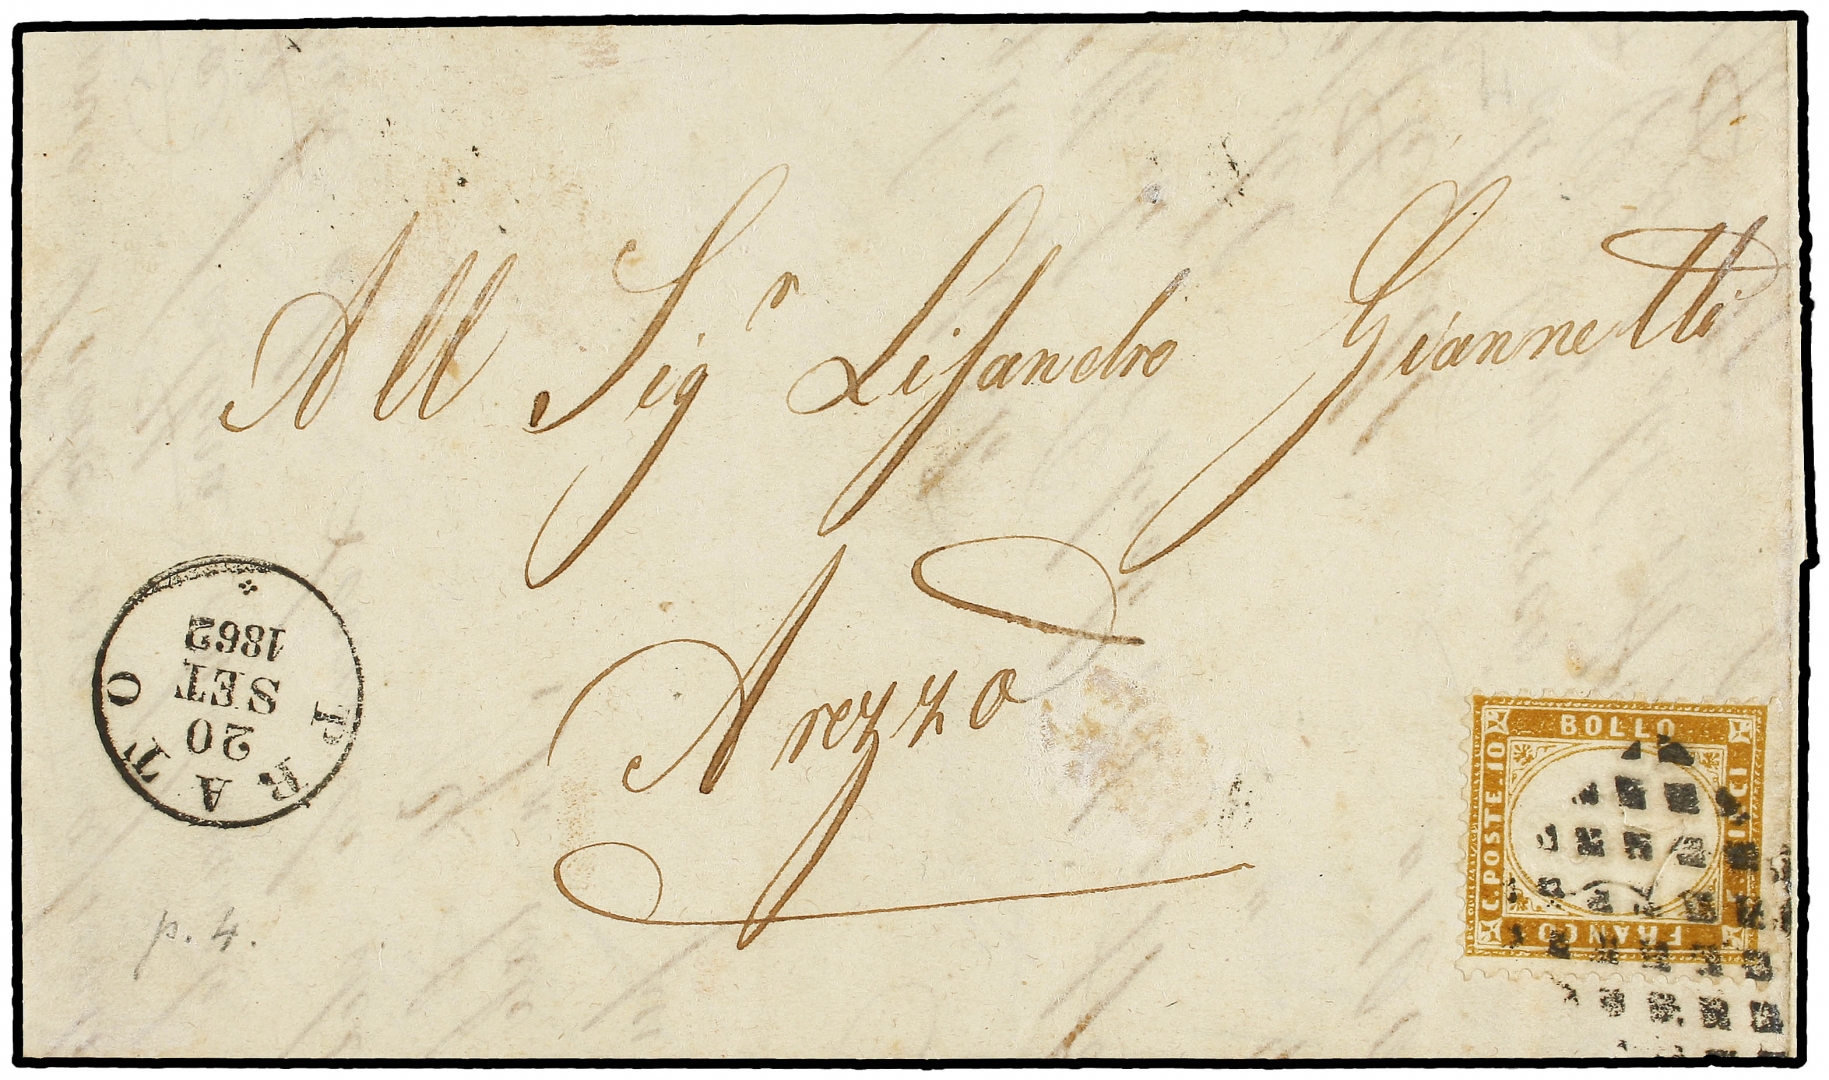 All Sig.r Lisandro Giannetti
Arezzo
PRATO
20
SET
1862
p. 4.
BOLLO
C. POSTE. 10
FRANCO